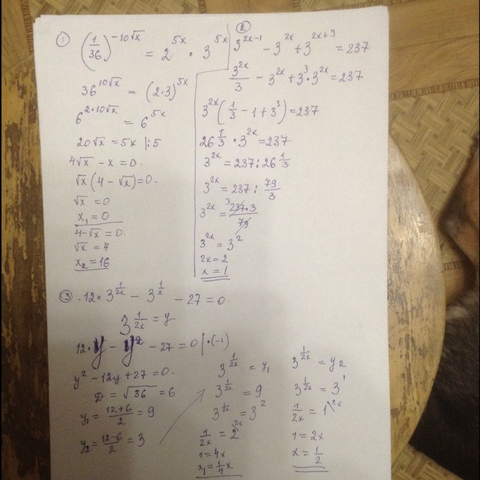 ①
(1/36)^(-10√x) = 2^(5x) · 3^(5x)
36^(10√x) = (2·3)^(5x)
6^(2·10√x) = 6^(5x)
20√x = 5x |:5
4√x - x = 0.
√x (4 - √x) = 0.
√x = 0
x₁ = 0
4 - √x = 0.
√x = 4
x₂ = 16
②
3^(2x-1) - 3^(2x) + 3^(2x+3) = 237
3^(2x)/3 - 3^(2x) + 3³·3^(2x) = 237
3^(2x) (1/3 - 1 + 3³) = 237
26 1/3 · 3^(2x) = 237
3^(2x) = 237 : 26 1/3
3^(2x) = 237 : 79/3
3^(2x) = 237·3/79
3^(2x) = 3²
2x = 2
x = 1
③ 12·3^(1/2x) - 3^(1/x) - 27 = 0
3^(1/2x) = y
12·y - y² - 27 = 0 | ·(-1)
y² - 12y + 27 = 0.
D = √36 = 6
y₁ = (12+6)/2 = 9
y₂ = (12-6)/2 = 3
3^(1/2x) = y₁
3^(1/2x) = 9
3^(1/2x) = 3²
1/2x = 2^(2x)
1 = 4x
x₁ = 1/4 x
3^(1/2x) = y₂
3^(1/2x) = 3¹
1/2x = 1\^(2x)
1 = 2x
x = 1/2